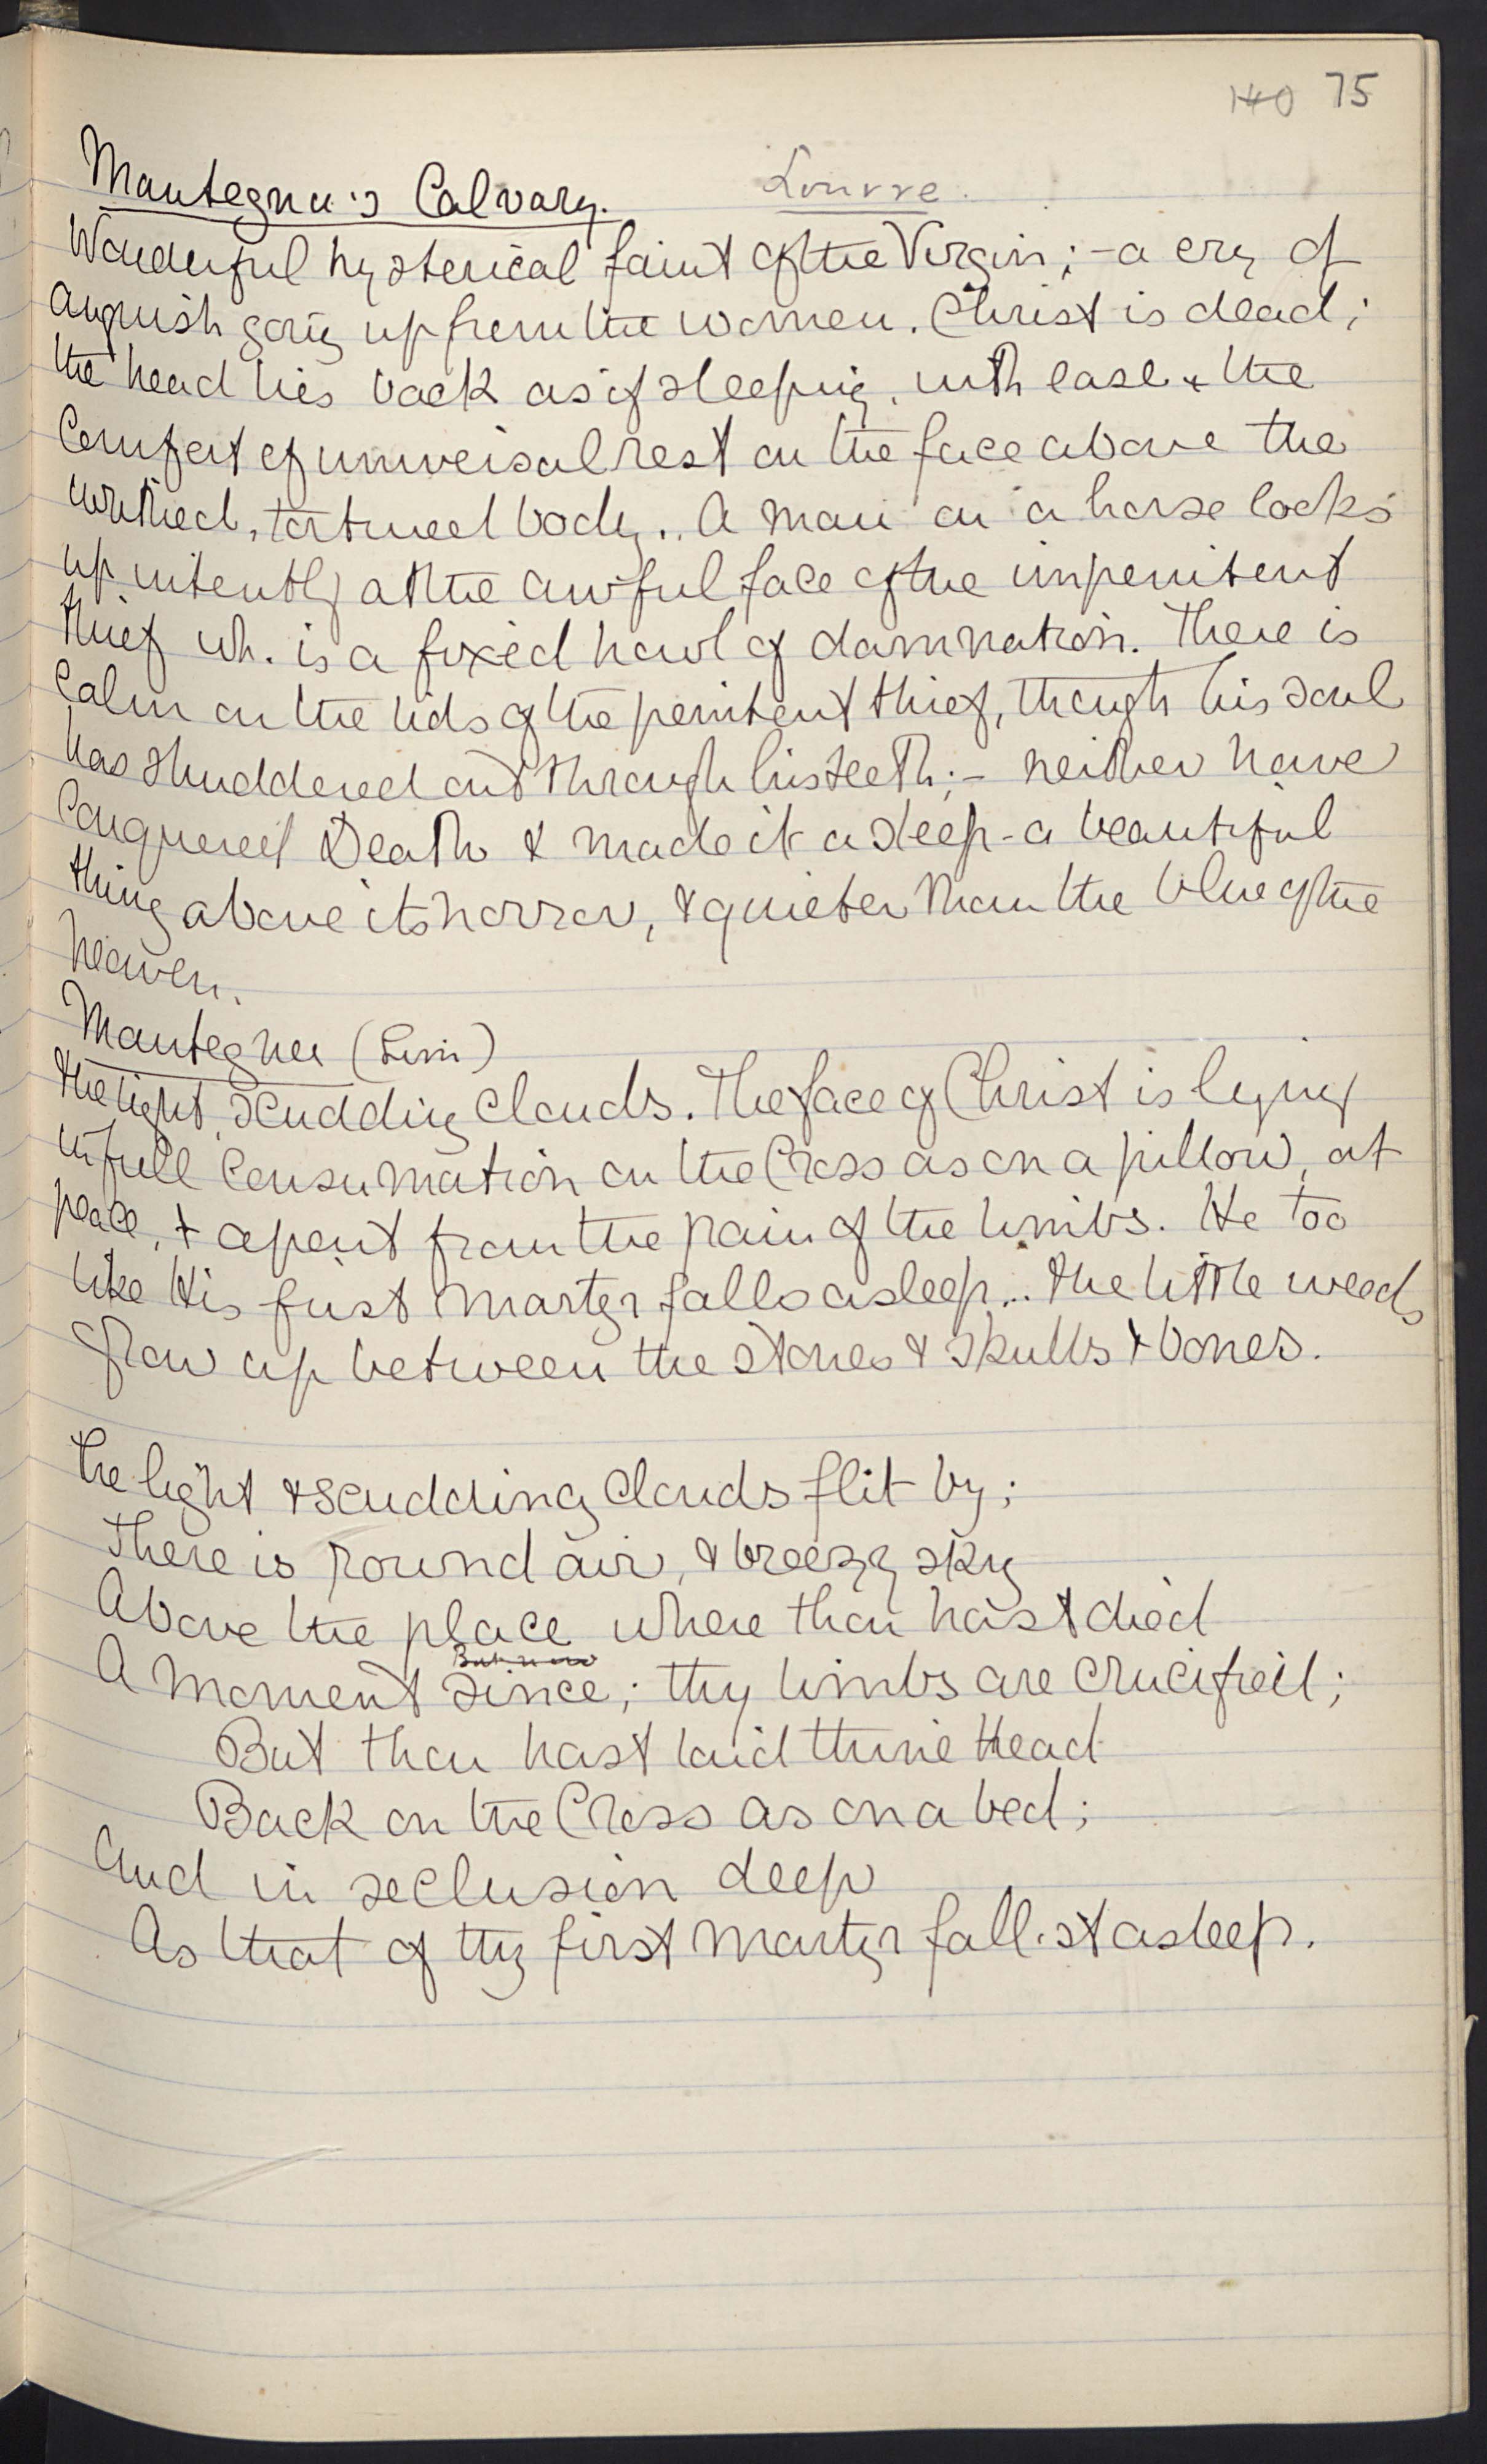 140 75
Mantegna's Calvary. Louvre.
Wonderful hysterical faint of the Virgin; - a cry of
anguish going up from the women. Christ is dead;
the head lies back as if sleeping, with ease & the
comfort of universal rest on the face above the
writhed, tortured body.. A man on a horse looks
up intently at the awful face of the impenitent
thief wh. is a fixed howl of damnation. There is
calm on the lids of the penitent thief, though his soul
has shuddered out through his teeth; - neither have
conquered Death & made it a sleep - a beautiful
thing above its horror, & quieter than the blue of the
heaven.
Mantegna (Sim)
The light, scudding clouds. The face of Christ is lying
in full consumation on the Cross as on a pillow, at
peace, & apart from the pain of the limbs. He too
like His first martyr falls asleep... the little weeds
grow up between the stones & skulls & bones.
The light & scudding clouds flit by;
There is round air, & breezy sky
Above the place where thou hast died
But now
A moment since; thy limbs are crucified;
But thou hast laid thine Head
Back on the Cross as on a bed;
And in seclusion deep
As that of thy first martyr fall'st asleep.